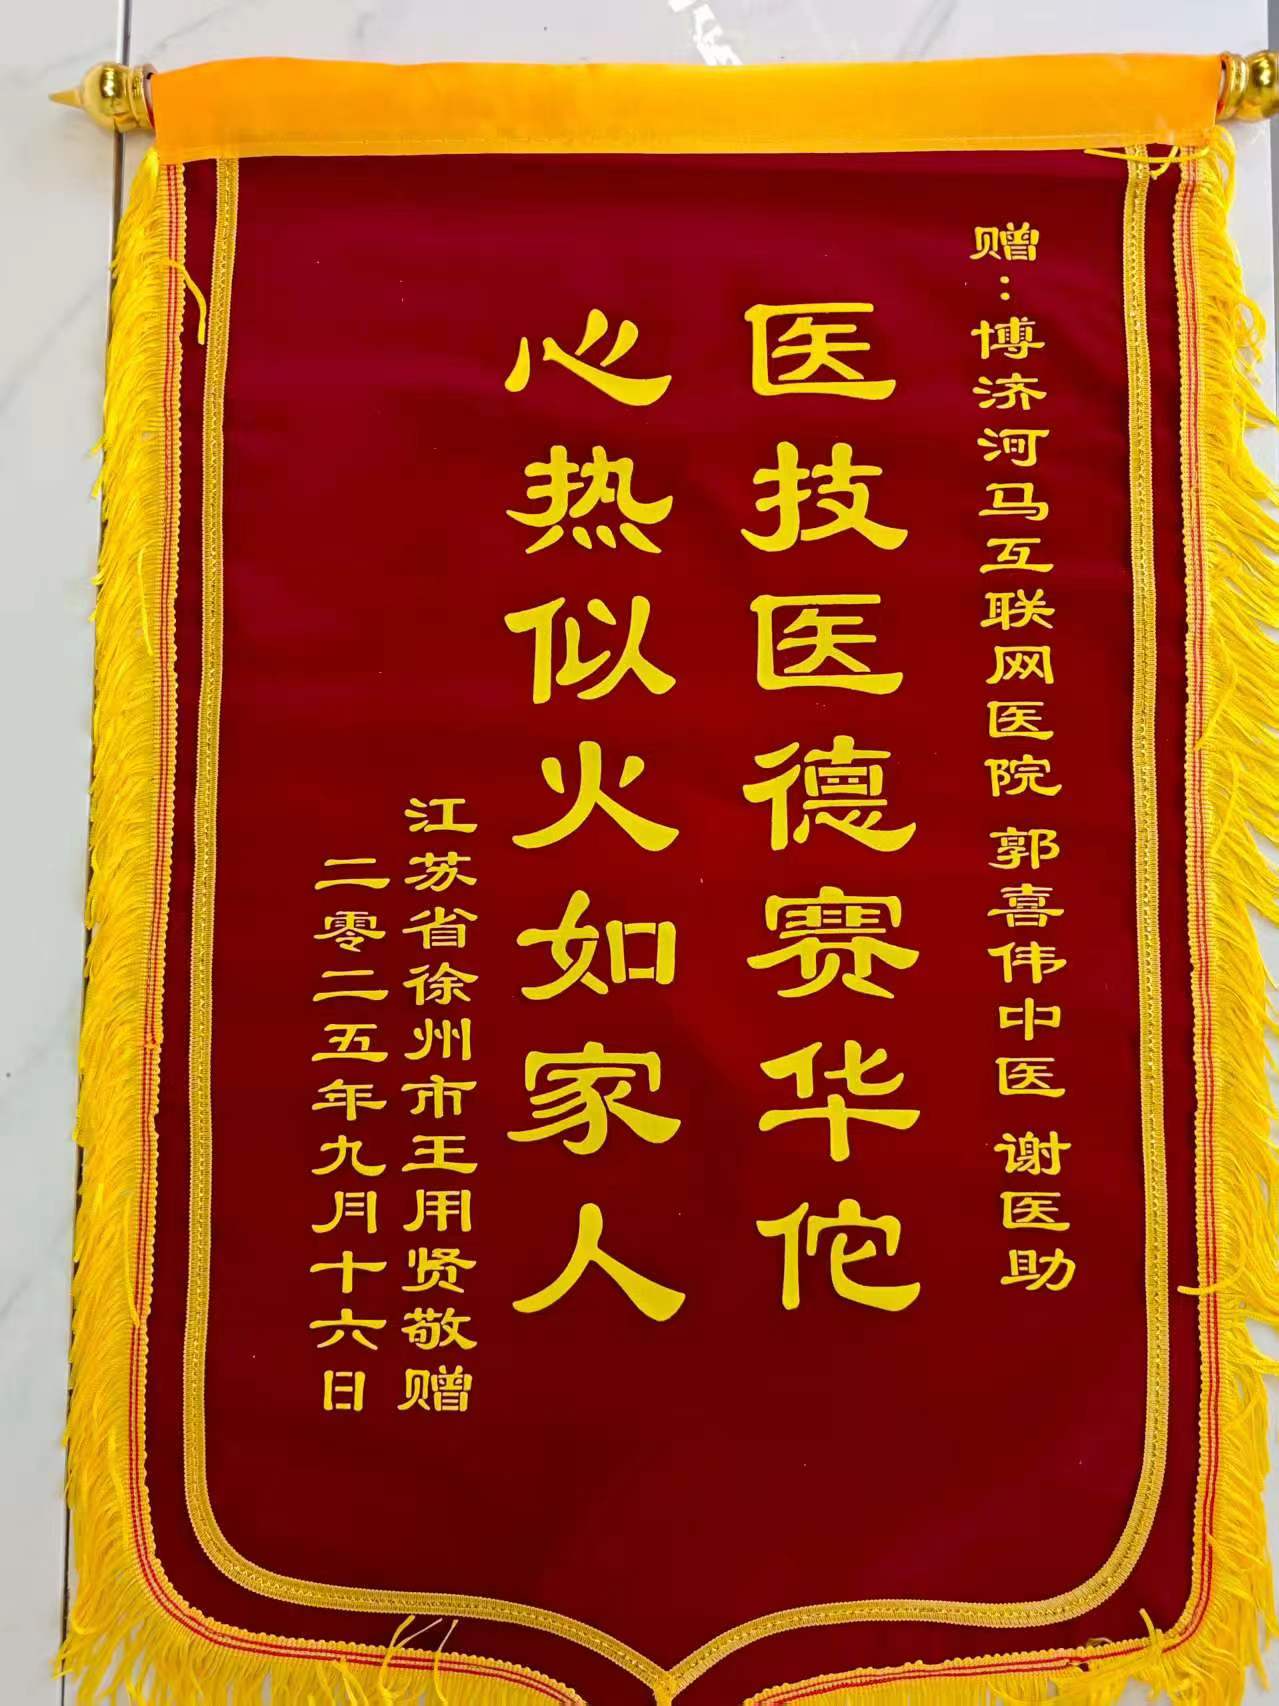 赠：博济河马互联网医院 郭喜伟中医 谢医助
医技医德赛华佗
心热似火如家人
江苏省徐州市王用贤敬赠
二零二五年九月十六日